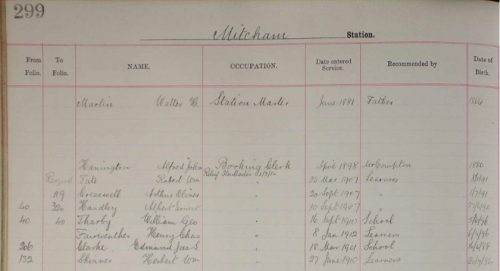 299
Mitcham Station.
From Folio. To Folio. NAME. OCCUPATION. Date entered Service. Recommended by Date of Birth.
Martin Walter Station Master June 1881 Father
Hannington Alfred John Booking Clerk April 1898 Mr Crompton 1880
Tate Robert Wm 1907 Learners
119 Cresswell Arthur Oliver " 20 Sept 1907 " 1/7/91
40 Handley Albert Ernest " 10 Sept 1907 "
40 40 Tharby William Geo " 16 Sept 1910 School
Fairweather Henry Chas " 8 Jan 1912 Learners
206 Clarke Edmund Jas S " 18 Mar 1901 School
132 Skinner Herbert Wm " 27 June 1910 Learners